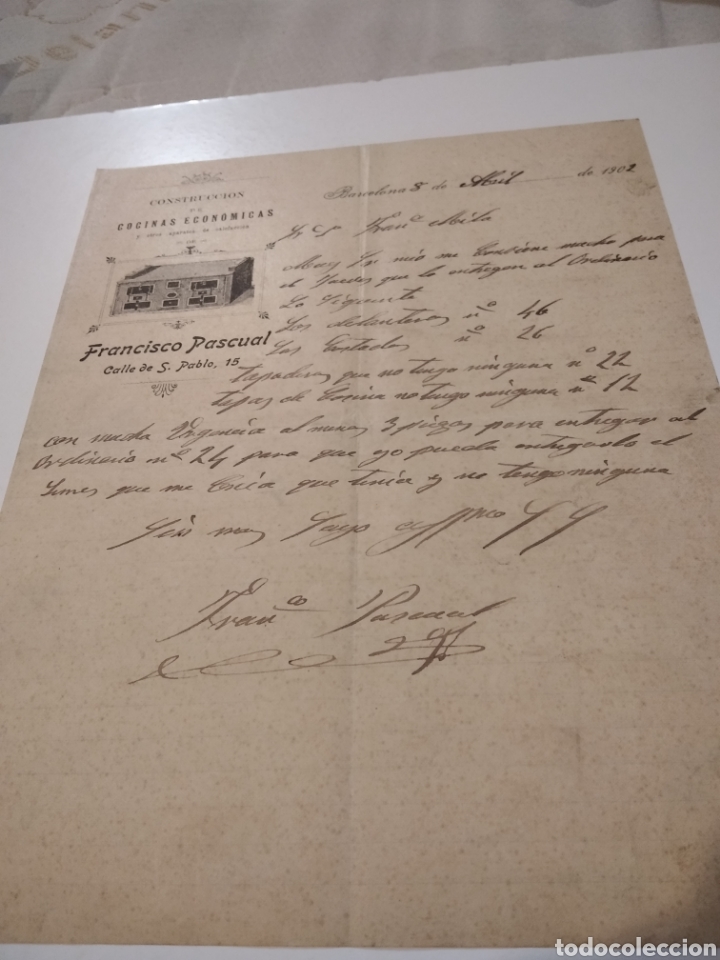 CONSTRUCCION
DE
COCINAS ECONÓMICAS
Y OTROS APARATOS DE CALEFACCION
DE
Francisco Pascual
Calle de S. Pablo, 15
Barcelona 8 de Abril de 1902
Franco Mila
Muy Sr mio me Combiene mucho para
el Jueves que lo entregen al Ordinario
Lo Siguiente
Los delanteros no 46
Los Costados no 26
tapaderas que no tengo ninguna no 22
tapas de Cocina no tengo ninguna no 12
con mucha Urgencia al menos 3 piezas para entregar al
Ordinario no 24 para que yo pueda entregarlo el
Lunes que me Creia que tenia y no tengo ninguna
Sin mas
Franco Pascual
todocoleccion